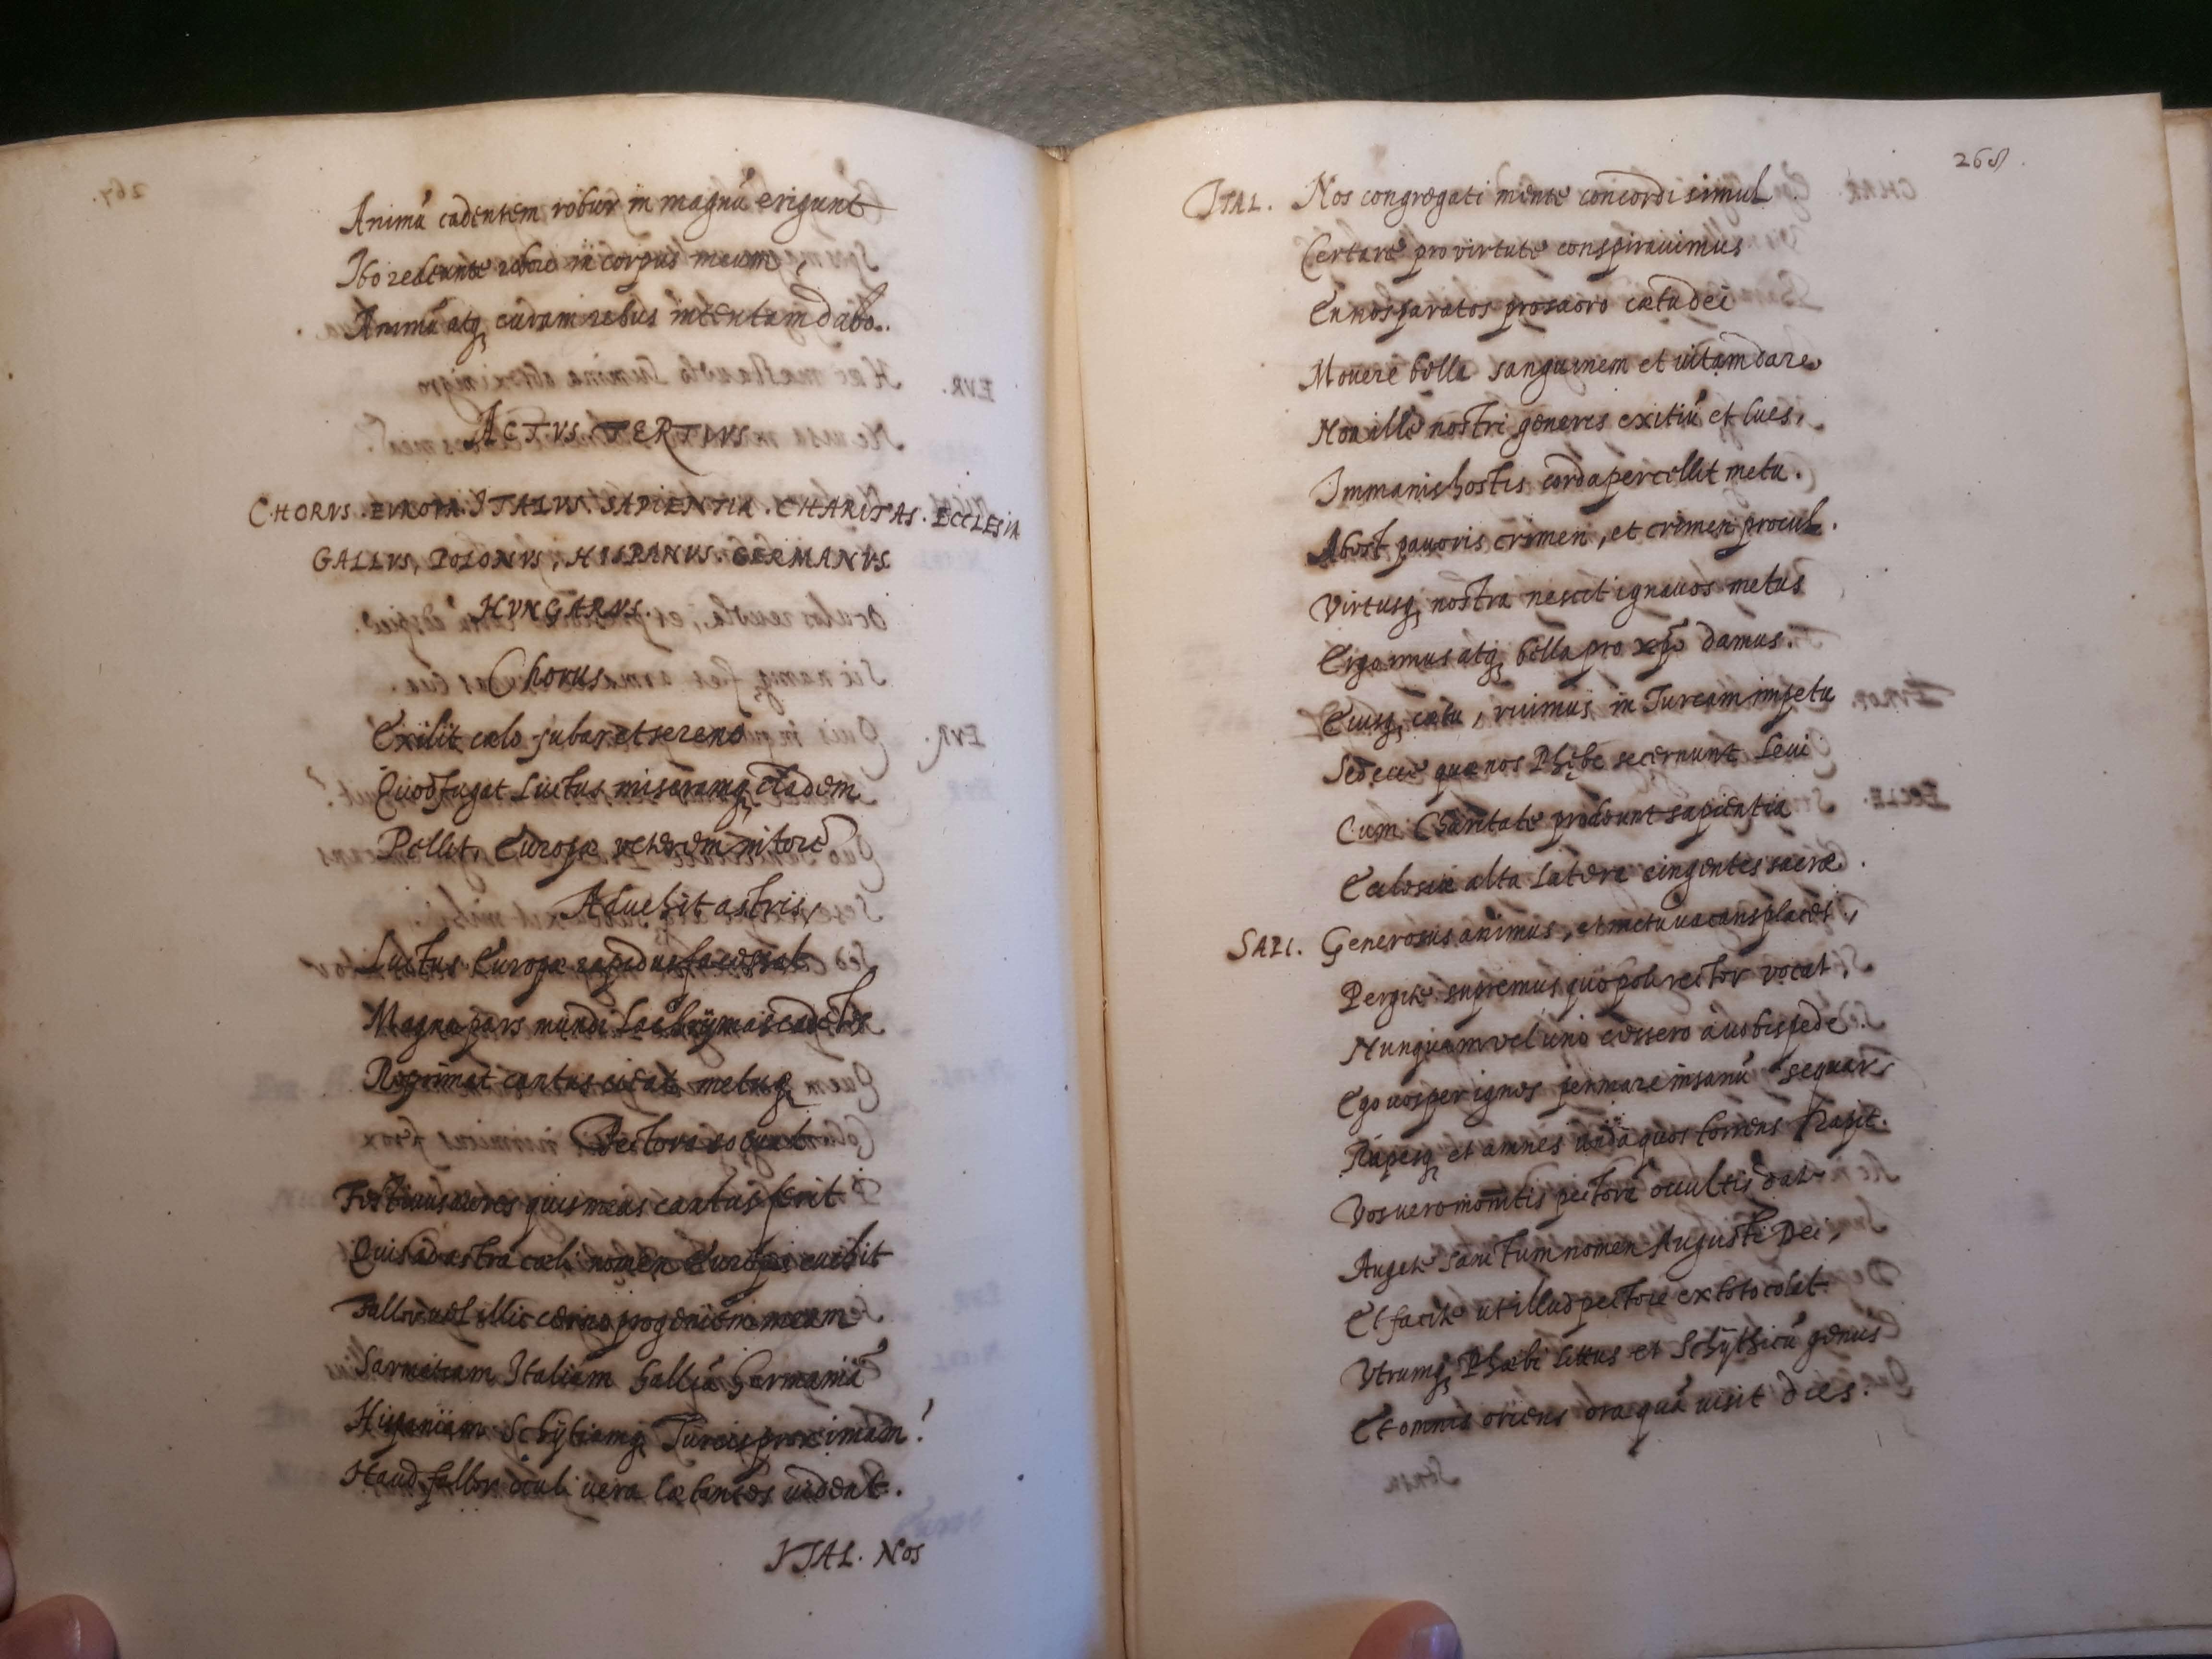 Animū cadentem robur in magnū erigunt
Ibo redeunte robore in corpus meum,
Animū atq; curam rebus intentam dabo.
ACTVS TERTIVS
CHORVS. EVROPA. ITALVS. SAPIENTIA. CHARITAS. ECCLESIA
GALLVS, POLONVS, HISPANVS. GERMANVS
HVNGARVS.
Chorus
Exilit cælo jubar et sereno
Quod fugat Luctus miseramq; cladem
Pellit, Europæ venerem nitore
Aduehit astris,
Luctus Europæ rapidus facessat
Magna pars mundi lachrÿmas
Reprimat cantus metuq;
Pectora soluat
Festiuus aures quis meas cantus ferit
Quis ad astra cæli nomen Europæ euehit
Fallor uel illic cerno progeniem meam
Sarmatiam Italiam Galliā Germaniā
Hispaniam Schÿtiamq; Turcis proximam?
Haud fallor oculi uera lætantes uident.
ITAL. Nos
268
ITAL. Nos congregati mente concordi simul
Certare pro virtute conspirauimus
En nos paratos pro sacro cætu dei
Mouere bella sanguinem et uitam dare
Non ille nostri generis exitiū et lues,
Immanis hostis corda percellit metu.
Abest pauoris crimen, et crimen procul.
Virtusq; nostra nescit ignauos metus
Ergo imus atq; bella pro xp̄o damus.
Eiusq; cætu, ruimus in Turcam impetu
Sed ecce quæ nos Phębe secernunt leui
Cum Charitate prodeunt sapientia
Ecclesiæ alta latere cingentes sacræ.
SAPI. Generosus animus, et metu uacans placet,
Pergite supremus quo poli rector vocat,
Nunquam vel uno cessero à uobis pede
Ego uos per ignes per mare insanū sequar
Rupesq; et amnes unda quos torrens rapit.
Vos uero monitis pectore occultis date
Augete sanctum nomen Augusti Dei,
Et facite ut illud pectore ex toto colat
Vtrumq; Phæbi littus et Schÿthicū genus
Et omnis oriens ora quā uisit dies.